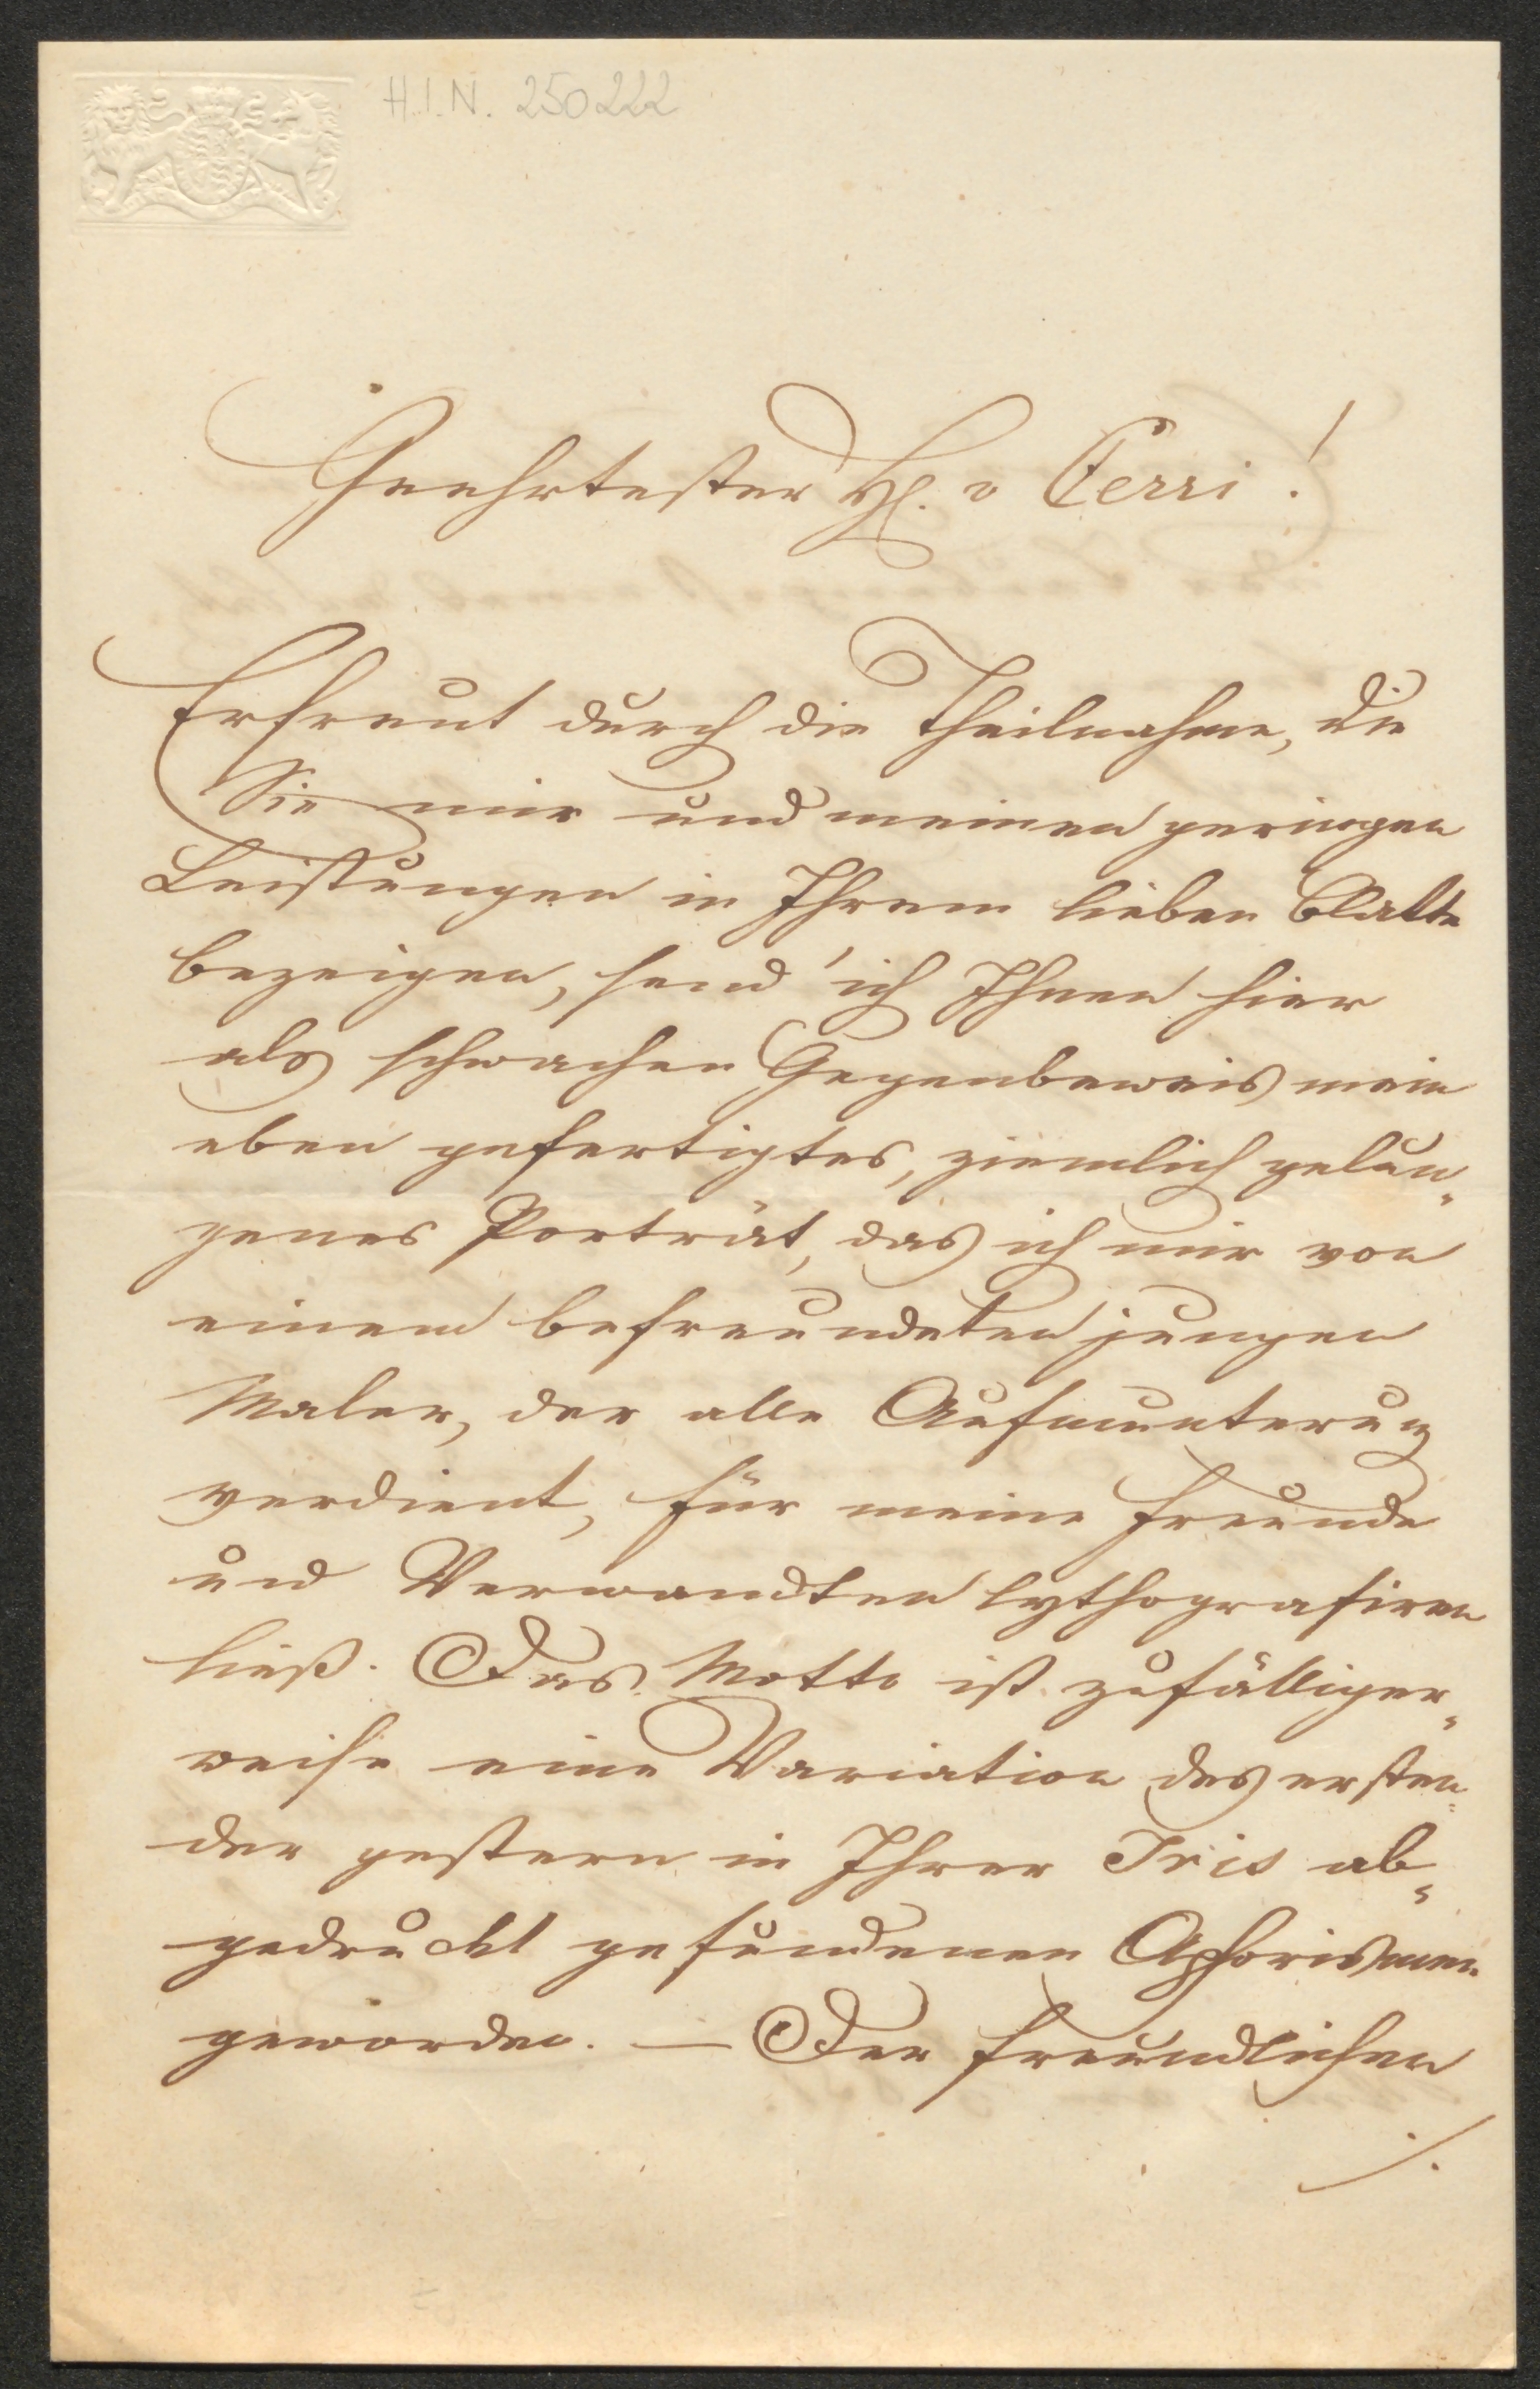 H.I.N. 250222
Geehrtester H. v Cerri!
Erfreut durch die Theilnahme, die
Sie mir und meinen geringen
Leistungen in Ihrem lieben Blatte
bezeigen, send' ich Ihnen hier
als schwachen Gegenbeweis mein
eben gefertigtes, ziemlich gelun¬
genes Porträt, das ich mir von
einem befreundeten jungen
Maler, der alle Aufmunterung
verdient, für meine Freunde
und Verwandten lythografiren
ließ. Das Motto ist zufälliger¬
weise eine Variation des ersten
der gestern in Ihrer Iris ab¬
gedruckt gefundenen Aphorismen
geworden. — Der freundlichen
./.